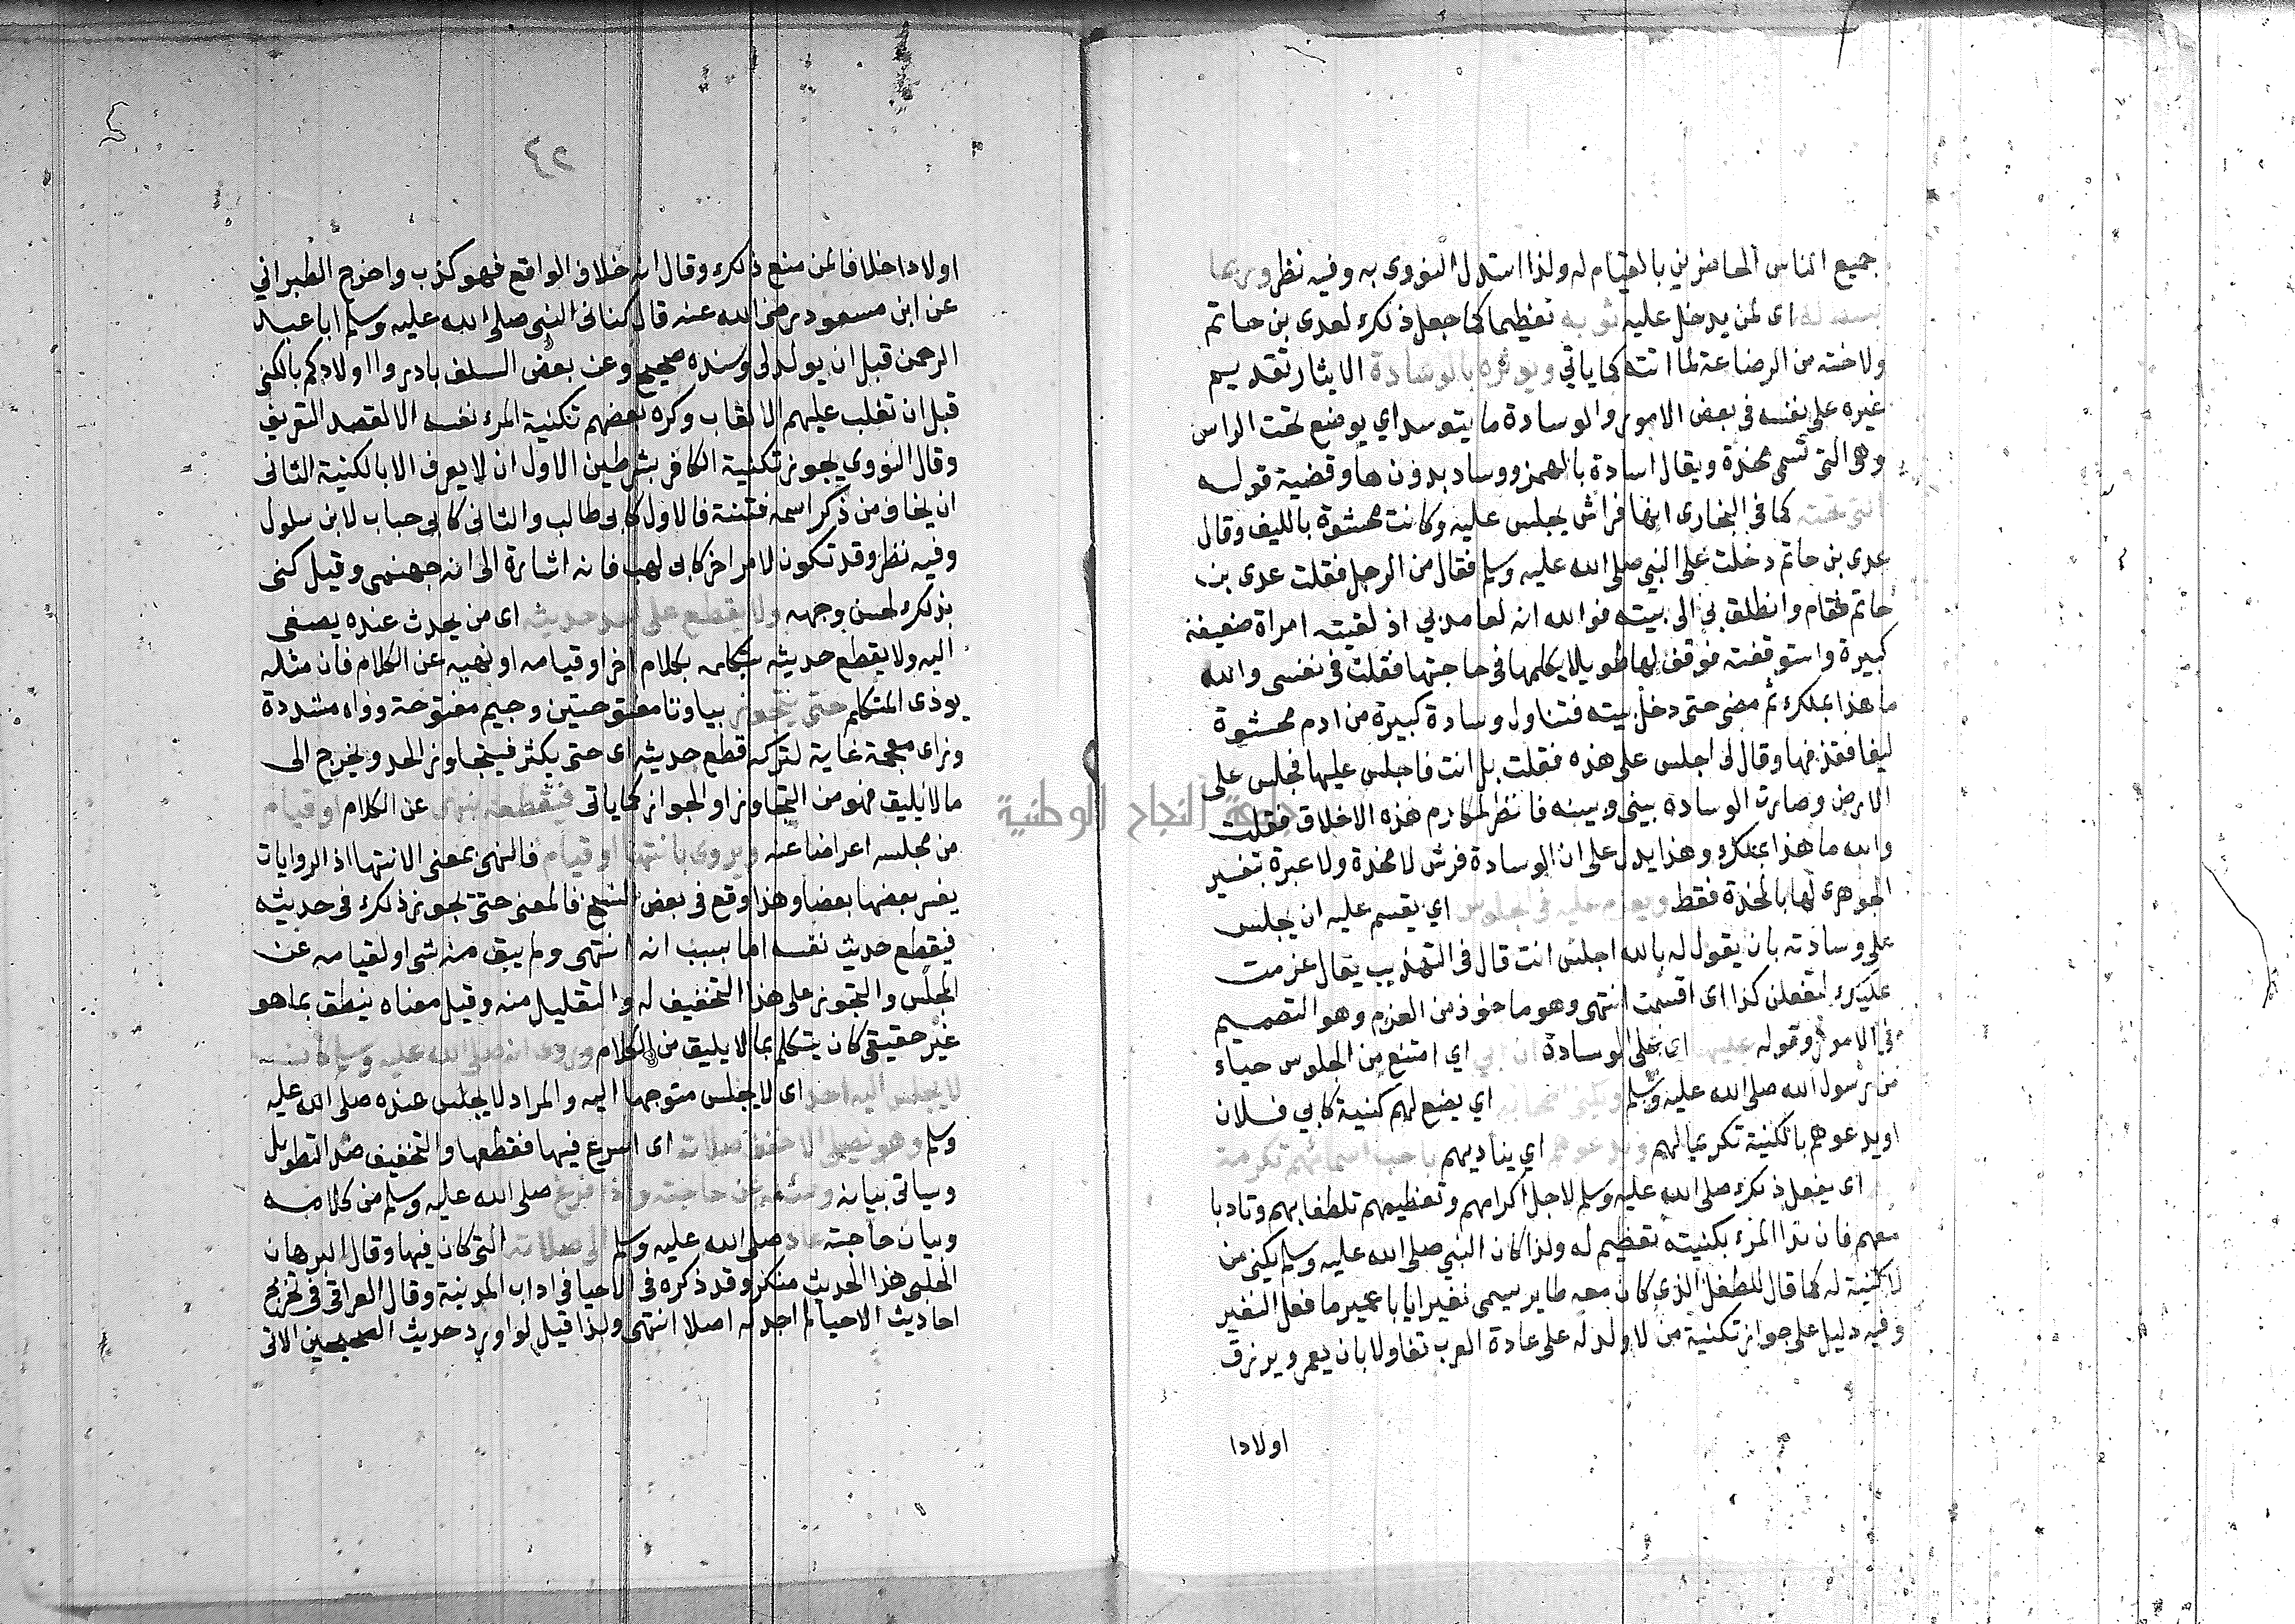 جميع الناس الحاضرين بالقيام له ولذا استدل النووى به وفيه نظر وربما
بسط له اى لمن يدخل عليه ثوبه تعظيما كما جعل ذلك لعدى بن حاتم
ولاخته من الرضاعة لما اتته كما ياتي ويوثره بالوسادة الايثار تقديم
غيره على نفسه فى بعض الامور والوسادة ما يتوسد اي يوضع تحت الراس
وهو التى تسمى مخدة ويقال اسادة بالهمز ووساد بدون ها وقضية قوله
التى تحته كما في البخارى انها فراش يجلس عليه وكانت محشوة بالليف وقال
عدى بن حاتم دخلت على النبي صلى الله عليه وسلم فقال من الرجل فقلت عدى بن
حاتم فقام وانطلق بى الى بيته فوالله انه لعامد بي اذ لقيته امراة ضعيفة
كبيرة واستوقفته فوقف لها طويلا يكلمها فى حاجتها فقلت فى نفسى والله
ما هذا بملك ثم مضى حتى دخل بيته فتناول وسادة كبيرة من ادم محشوة
ليفا فقذفها وقال لى اجلس على هذه فقلت بل انت فاجلس عليها فجلس على
الارض وصارت الوسادة بينى وبينه فانظر لمكارم هذه الاخلاق فقلت
والله ما هذا بملك وهذا يدل على ان الوسادة فرش لا مخدة ولا عبرة بتفسير
الجوهرى لها بالمخدة فقط ويعزم عليه فى الجلوس اي يقسم عليه ان يجلس
على وسادته بان يقول له بالله اجلس انت قال فى التهذيب يقال عزمت
عليك لتفعلن كذا اى اقسمت انتهى وهو ماخوذ من العزم وهو التصميم
فى الامر وقوله عليها اى على الوسادة ان ابى اي امتنع من الجلوس حياء
من رسول الله صلى الله عليه وسلم ويكنى اصحابه اي يضع لهم كنية كابي فلان
او يدعوهم بالكنية تكريما لهم ويدعوهم اي يناديهم باحب اسمائهم تكرمة
اى يفعل ذلك صلى الله عليه وسلم لاجل اكرامهم وتعظيمهم تلطفا بهم وتادبا
معهم فان ندا المرء بكنيته تعظيم له ولذا كان النبي صلى الله عليه وسلم يكنى من
لا كنية له كما قال للطفل الذي كان معه طاير سيمى نغيرا يابا عمير ما فعل النغير
وفيه دليل على جواز تكنية من لا ولد له على عادة العرب تفاولا بان يعمر ويرزق
اولادا
٤٢
اولادا خلافا لمن منع ذلك وقال انه خلاف الواقع فهو كذب واخرج الطبراني
عن ابن مسعود رضى الله عنه قال كنانى النبى صلى الله عليه وسلم ابا عبد
الرحمن قبل ان يولد لى وسنده صحيح وعن بعض السلف بادروا اولادكم بالكنى
قبل ان تغلب عليهم الالقاب وكره بعضهم تكنية المرء نفسه الا لقصد التعريف
وقال النووي يجوز تكنية الكافر بشرطين الاول ان لا يعرف الا بالكنية الثانى
ان يخاف من ذكر اسمه فتنة فالاول كابى طالب والثانى كابى حباب لابن سلول
وفيه نظر وقد تكون لامر اخر كابى لهب فانه اشارة الى انه جهنمى وقيل كنى
بذلك لحسن وجهه ولا يقطع على احد حديثه اى من يحدث عنده يصغى
اليه ولا يقطع حديثه بكلام اخر او قيامه او نهيه عن الكلام فان مثله
يوذى المتكلم حتى يتجوز بيا وتا مفتوحتين وجيم مفتوحة وواو مشددة
وزاى معجمة غاية لتركه قطع حديثه اى حتى يكثر فيتجاوز الحد ويخرج الى
ما لا يليق فهو من التجاوز او الجواز كما ياتى فيقطعه بنهى عن الكلام او قيام
من مجلسه اعراضا عنه ويروى بانتها او قيام فالنهى بمعنى الانتها اذ الروايات
يفسر بعضها بعضا وهذا وقع فى بعض النسخ فالمعنى حتى يجوز ذلك فى حديثه
فيقطع حديث نفسه اما بسبب انه انتهى ولم يبق منه شى او لقيامه عن
المجلس والتجوز على هذا التخفيف له والتقليل منه وقيل معناه ينطق بما هو
غير حقيقى كان يتكلم بما لا يليق من الكلام وروى انه صلى الله عليه وسلم كان
لا يجلس اليه احد اى لا يجلس متوجها اليه والمراد لا يجلس عنده صلى الله عليه
وسلم وهو يصلى الا خفف صلاته اى اسرع فيها فقطعها والتخفيف ضد التطويل
وسياتى بيانه وساله عن حاجته فاذا فرغ صلى الله عليه وسلم من كلامه
وبيان حاجته عاد صلى الله عليه وسلم الى صلاته التى كان فيها وقال البرهان
الحلبى هذا الحديث منكر وقد ذكره فى الاحيا فى اداب المدينة وقال العراقى فى تخريج
احاديث الاحيا لم اجد له اصلا انتهى ولذا قيل لو اورد حديث الصحيحين الاتى
جامعة النجاح الوطنية